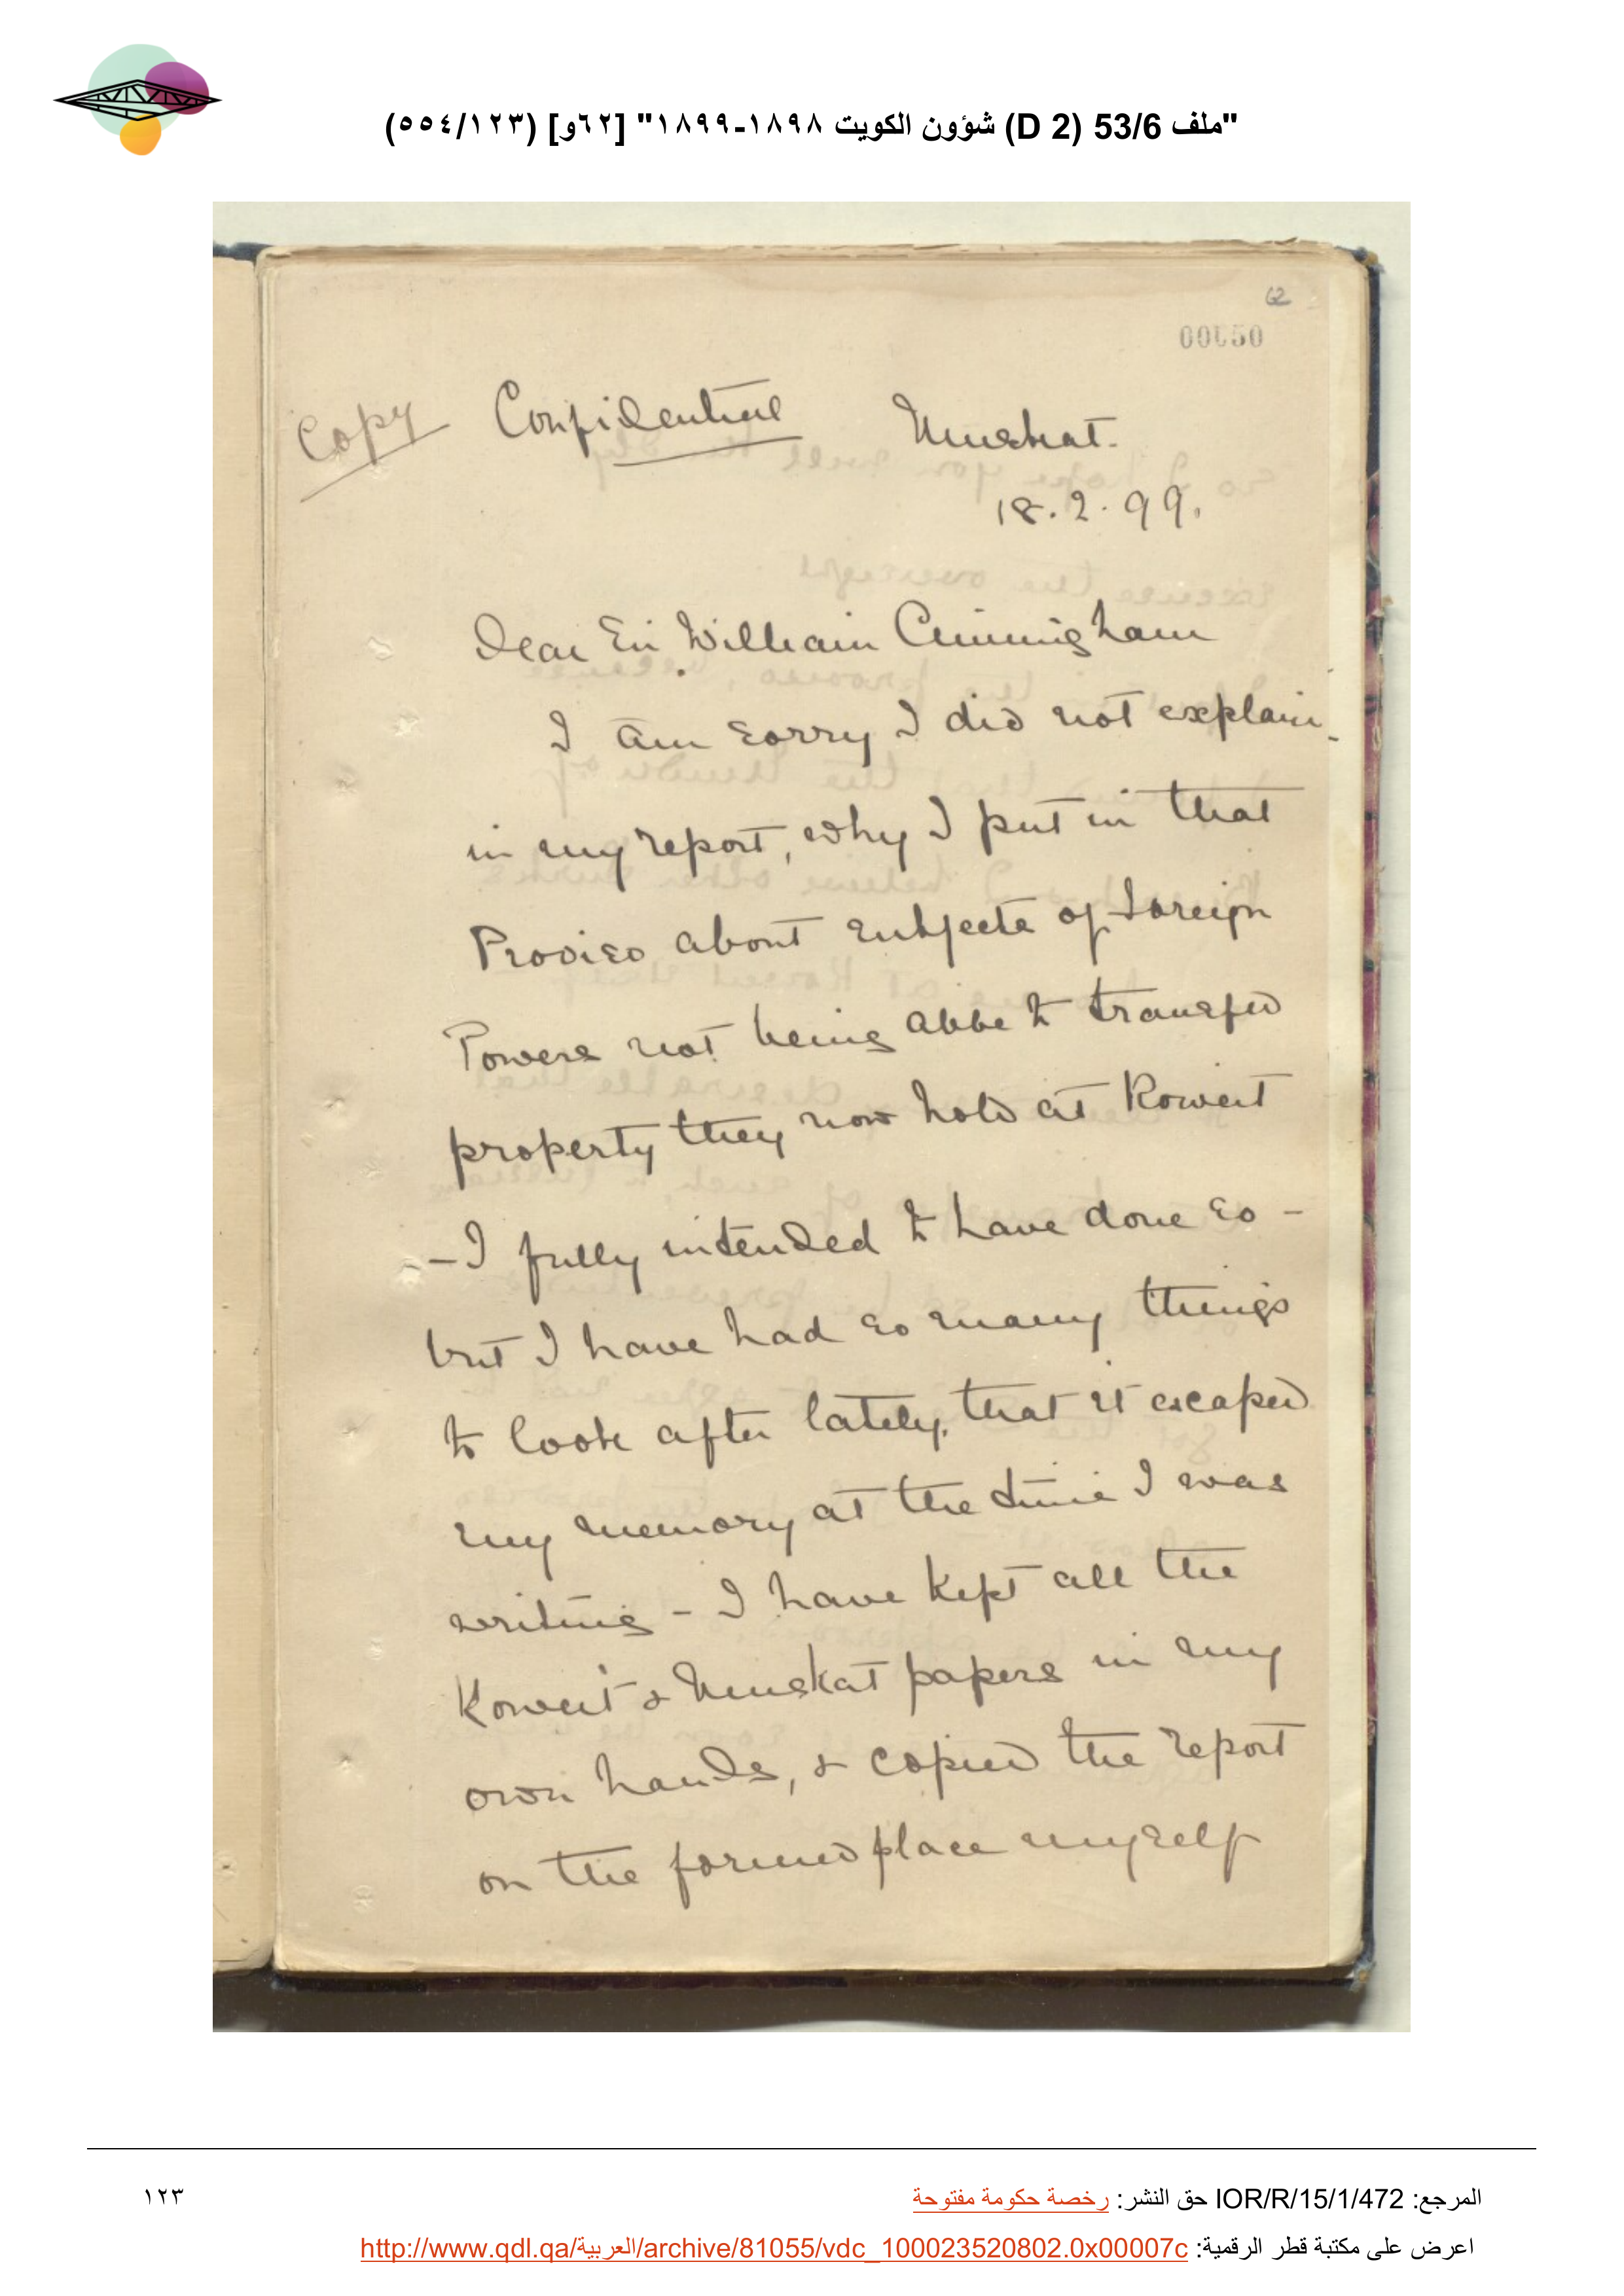 "ملف 53/6 (D 2) شؤون الكويت ١٨٩٨-١٨٩٩" [٦٢و] (١٢٣/٥٥٤)
62
00050
Copy Confidential Muskat.
18.2.99.
Dear Sir William Cunningham
I am sorry I did not explain
in my report, why I put in that
Proviso about subjects of Foreign
Powers not being able to transfer
property they now hold at Koweit
- I fully intended to have done so -
but I have had so many things
to look after lately, that it escaped
my memory at the time I was
writing - I have kept all the
Koweit & Muskat papers in my
own hands, & copied the report
on the former place myself
المرجع: IOR/R/15/1/472 حق النشر: رخصة حكومة مفتوحة
١٢٣
اعرض على مكتبة قطر الرقمية: http://www.qdl.qa/العربية/archive/81055/vdc_100023520802.0x00007c